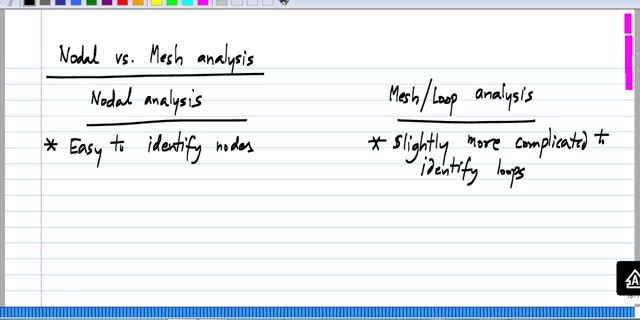 Nodal vs. Mesh analysis
Nodal analysis
* Easy to identify nodes
Mesh/Loop analysis
* Slightly more complicated to
identify loops